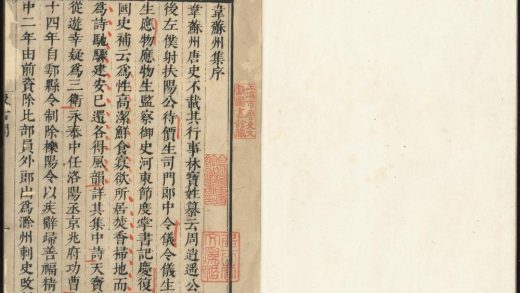 韋蘇州集序
韋蘇州唐史不載其行事林寶姓纂云周逍遙公
後左僕射扶陽公待價生司門郎中令儀令儀生
生應物應物生監察御史河東節度掌書記慶復
國史補云爲性高潔鮮食寡欲所居焚香掃地而
爲詩馳驟建安已還各得風韻詳其集中詩天寶
從遊幸疑爲三衛永泰中任洛陽丞京兆府功曹
十四年自鄠縣令制除櫟陽令以疾辭歸善福精
中二年由前資除比部員外郎出爲滁州刺史改
上海市歷史文
獻圖書館藏